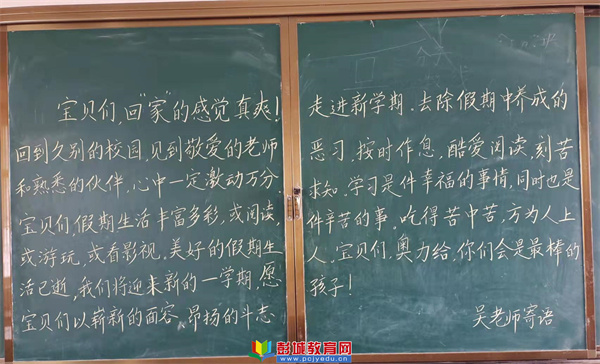 宝贝们,回"家"的感觉真爽!
回到久别的校园,见到敬爱的老师
和熟悉的伙伴,心中一定激动万分.
宝贝们,假期生活丰富多彩,或阅读,
或游玩,或看影视。美好的假期生
活已逝,我们将迎来新的一学期,愿
宝贝们以崭新的面容、昂扬的斗志
走进新学期,去除假期中养成的
恶习,按时作息,酷爱阅读,刻苦
求知.学习是件幸福的事情,同时也是
件辛苦的事。吃得苦中苦,方为人上
人,宝贝们,奥力给,你们会是最棒的
孩子!
吴老师寄语
彭城教育网
www.pcjyedu.cn